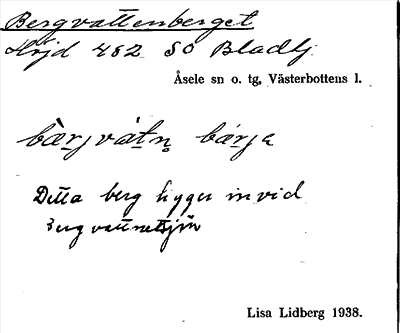 Bergvattenberget
Höjd 482 SO Bladtj.
Åsele sn o. tg, Västerbottens l.
bærjvátn̥ bárja
Detta berg ligger invid
Bergvattnetsjön
Lisa Lidberg 1938.